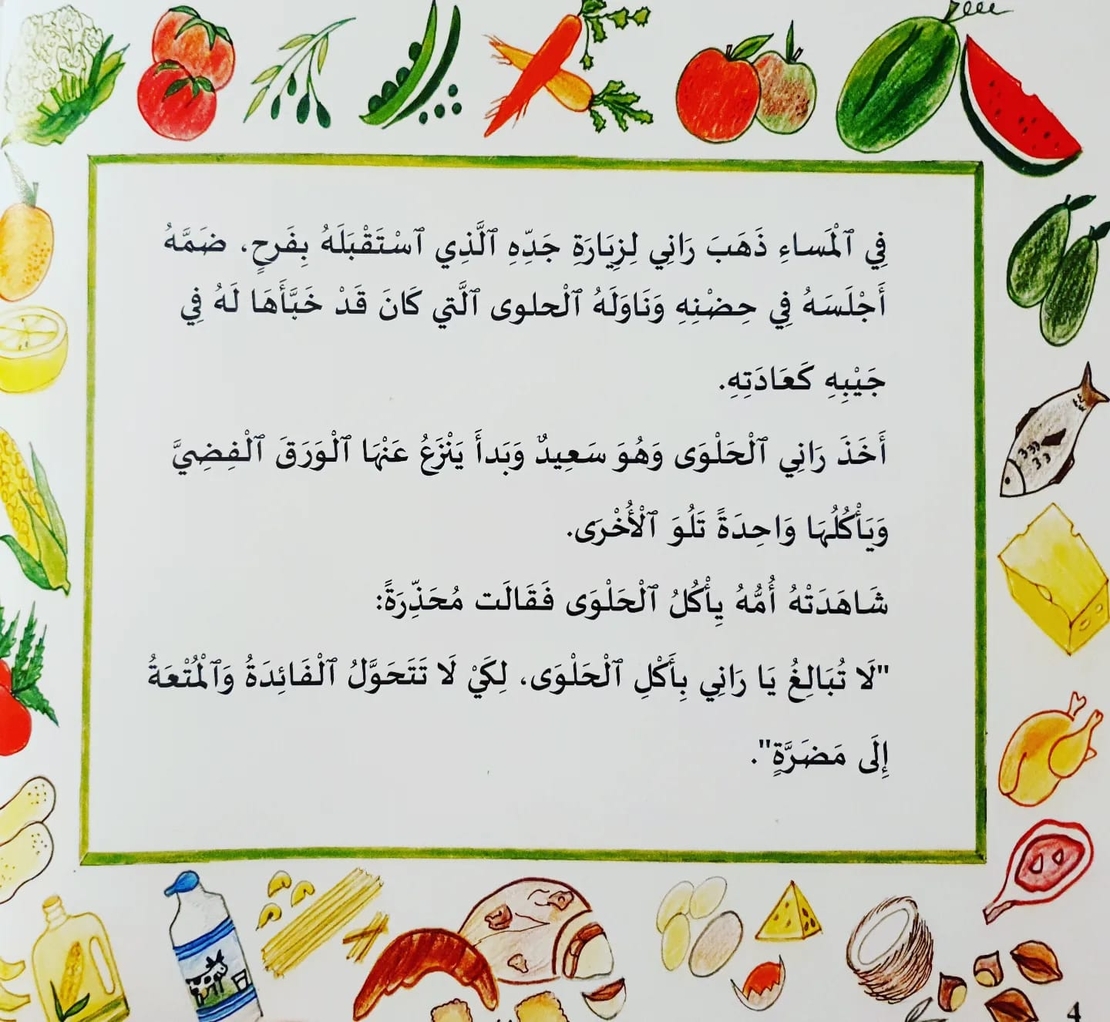 فِي ٱلْمَساءِ ذَهَبَ رَانِي لِزِيَارَةِ جَدِّهِ ٱلَّذِي ٱسْتَقْبَلَهُ بِفَرحٍ، ضَمَّهُ
أَجْلَسَهُ فِي حِضْنِهِ وَنَاوَلَهُ ٱلْحلوى ٱلَّتي كَانَ قَدْ خَبَّأَهَا لَهُ فِي
جَيْبِهِ كَعَادَتِهِ.
أَخَذَ رَانِي ٱلْحَلْوَى وَهُوَ سَعِيدٌ وَبَدأَ يَنْزَعُ عَنْهَا ٱلْوَرَقَ ٱلْفِضِيَّ
وَيَأْكُلُهَا وَاحِدَةً تَلُوَ ٱلْأُخْرَى.
شَاهَدَتْهُ أُمُّهُ يِأْكُلُ ٱلْحَلْوَى فَقَالَت مُحَذِّرَةً:
"لَا تُبَالِغُ يَا رَانِي بِأَكْلِ ٱلْحَلْوَى، لِكَيْ لَا تَتَحَوَّلُ ٱلْفَائِدَةُ وَٱلْمُتْعَةُ
إِلَى مَضَرَّةٍ".
4